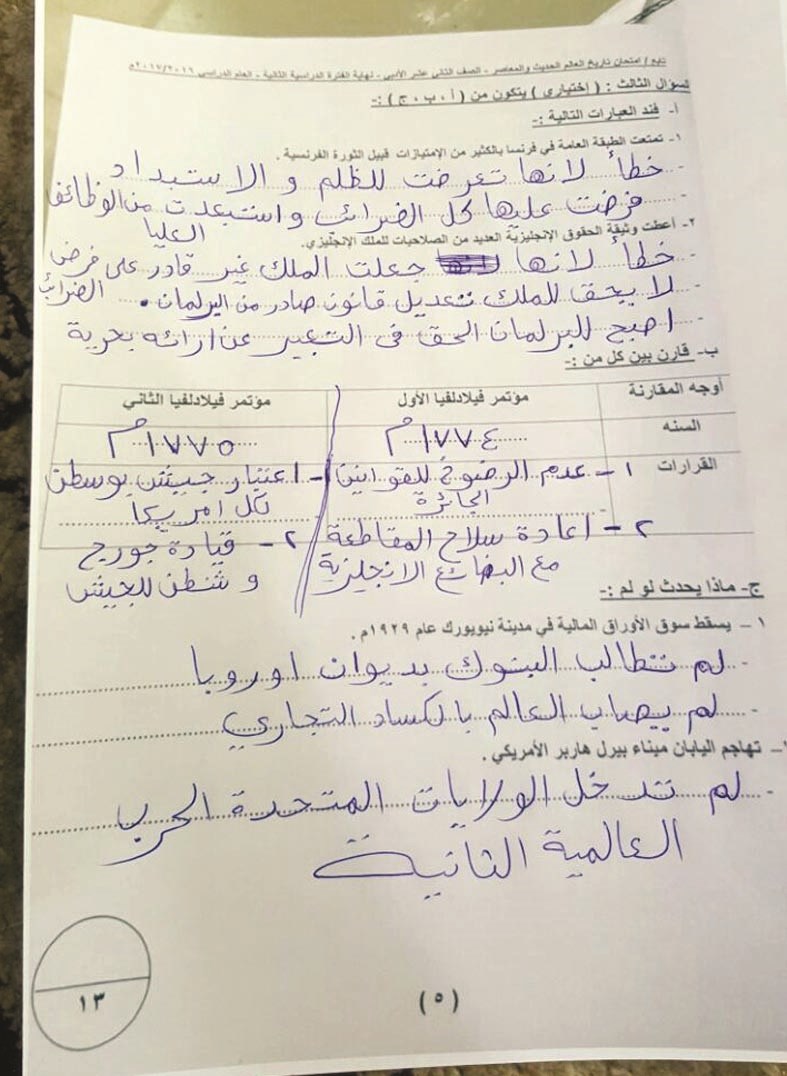 تابع / امتحان تاريخ العالم الحديث والمعاصر - الصف الثاني عشر الأدبي - نهاية الفترة الدراسية الثانية - العام الدراسي ٢٠١٦/٢٠١٧م
السؤال الثالث : ( إختياري ) يتكون من ( أ ، ب ، ج ) :-
أ- فند العبارات التالية :-
١- تمتعت الطبقة العامة في فرنسا بالكثير من الإمتيازات قبيل الثورة الفرنسية .
- خطأ لانها تعرضت للظلم و الاستبداد
- فرضت عليها كل الضرائب و استبعدت من الوظائف
العليا
٢- أعطت وثيقة الحقوق الإنجليزية العديد من الصلاحيات للملك الإنجليزي.
- خطأ لانها جعلت الملك غير قادر على فرض
الضرائب
- لا يحق للملك تعديل قانون صادر من البرلمان .
- اصبح للبرلمان الحق في التعبير عن ارائه بحرية
ب- قارن بين كل من :-
أوجه المقارنة مؤتمر فيلادلفيا الأول مؤتمر فيلادلفيا الثاني
السنه ١٧٧٤م ١٧٧٥م
القرارات ١- عدم الرضوخ للقوانين ١- اعتبار جيش بوسطن
الجائرة لكل امريكا
٢- اعادة سلاح المقاطعة ٢- قيادة جورج
مع البضائع الانجليزية و شنطن للجيش
ج- ماذا يحدث لو لم :-
١ - يسقط سوق الأوراق المالية في مدينة نيويورك عام ١٩٢٩م .
- لم تطالب البنوك بديوان اوروبا
- لم يصاب العالم بالكساد التجاري
٢- تهاجم اليابان ميناء بيرل هاربر الأمريكي .
- لم تتدخل الولايات المتحدة الحرب
العالمية الثانية
١٣
(٥)